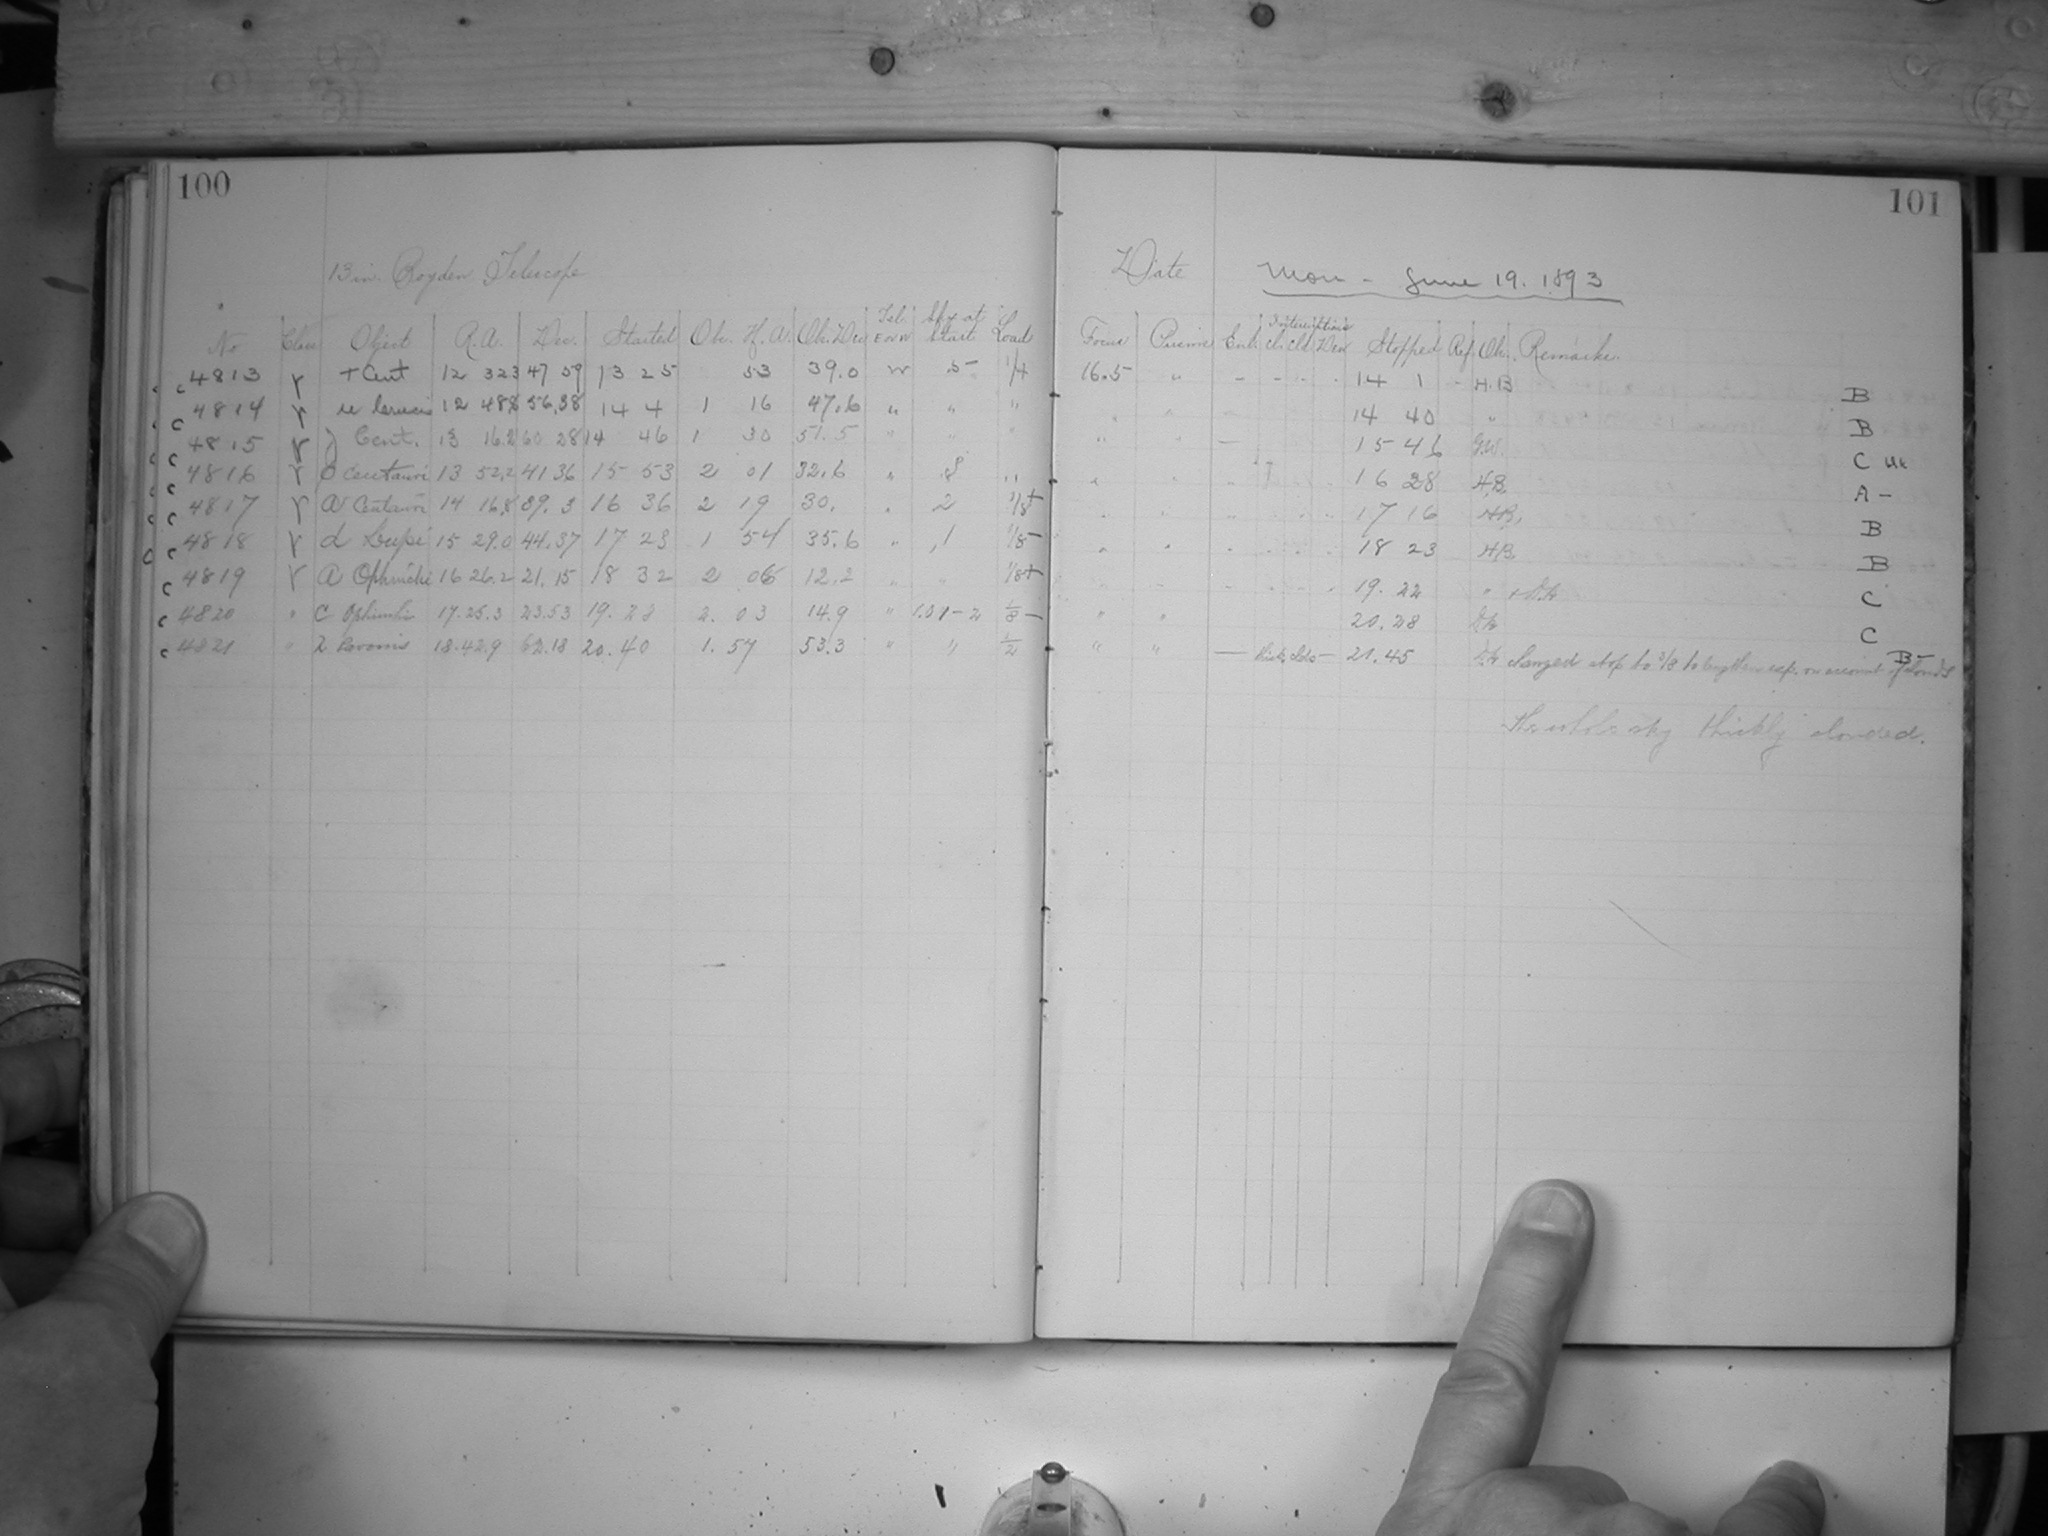 100
13 in. Boyden Telescope
No Class Object R.A. Dec. Started Ob. H. A. Ob. Dec Tel. E or W Sky at Start Load
4813 r τ Cent 12 32.3 47 59 13 25 53 39.0 W .5 1/4
4814 r u Crucis 12 48.8 56.38 14 4 1 16 47.6 " " "
4815 r J Cent. 13 16.2 60 28 14 46 1 30 51.5 " " "
4816 r Centauri 13 52.2 41 36 15 53 2 01 32.6 " .8 "
4817 r a Centauri 14 16.8 39.3 16 36 2 19 30. " 2
4818 r d Lupi 15 29.0 44.37 17 23 1 54 35.6 " .1 1/8-
4819 r A Ophiuchi 16 26.2 21.15 18 32 2 06 12.2 " " 1/8+
4820 " C Ophiuchi 17.25.3 23.53 19. 2. 03 14.9 " 1/8 -
4821 " λ Pavonis 18.42.9 62.18 20.40 1. 57 53.3 " " 1/2
101
Date Mon - June 19. 1893
Focus Prisms End. Interruptions Cl. Cld. Dew Stopped Ref. Ob. Remarks.
16.5 " - - - - 14 1 - H.B B
14 40 " B
" " - 15 46 G.W. C
" " 16 28 H.B. A -
17 16 H.B. B
18 23 H.B. B
19. 22 " C
" " 20.28 C
" " - thick clds - 21.45 changed stop to 3/8 to lengthen exp. on account of clouds B-
The whole sky thickly clouded.